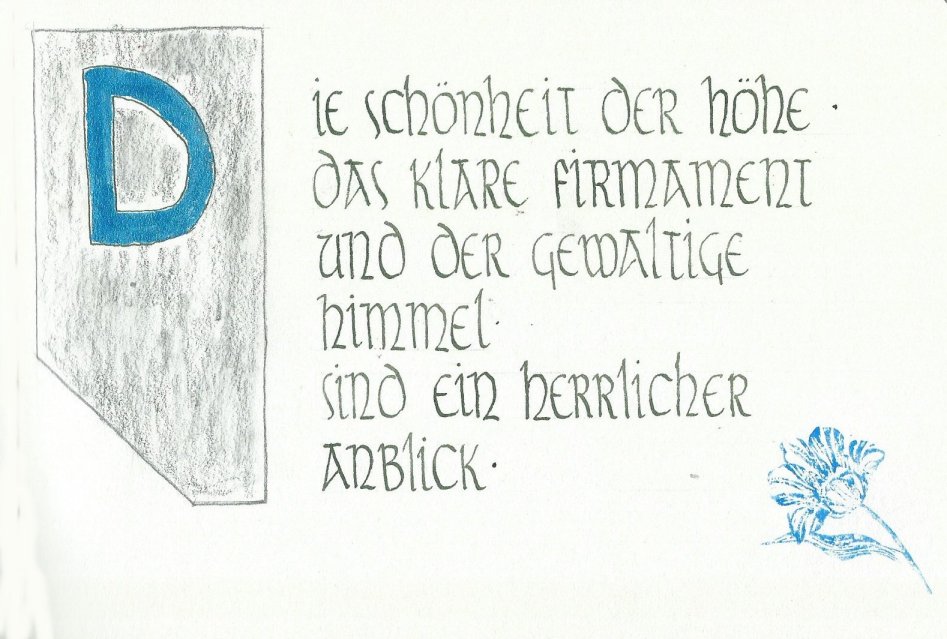 Die schönheit der höhe ·
das klare firmament
und der gewaltige
himmel·
sind ein herrlicher
anblick·